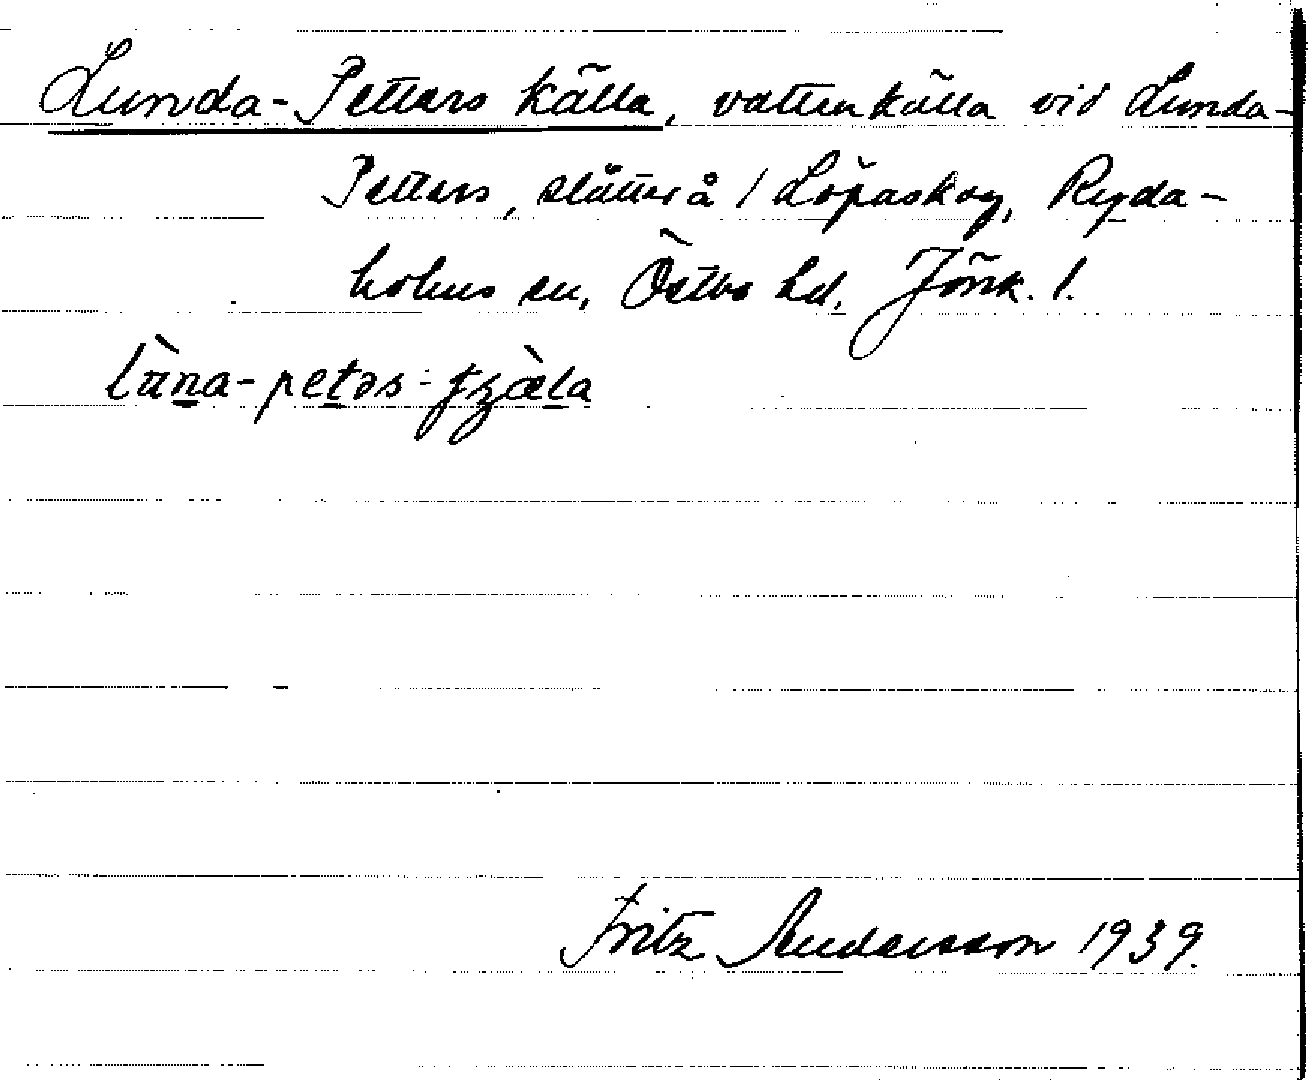 Lunda-Petters källa, vattenkälla vid Lunda-
Petters, slåtter å / Löpaskog, Ryda-
holms sn, Östbo hd. Jönk. l.
lùna-petəs-
Fritz Andersson 1939.